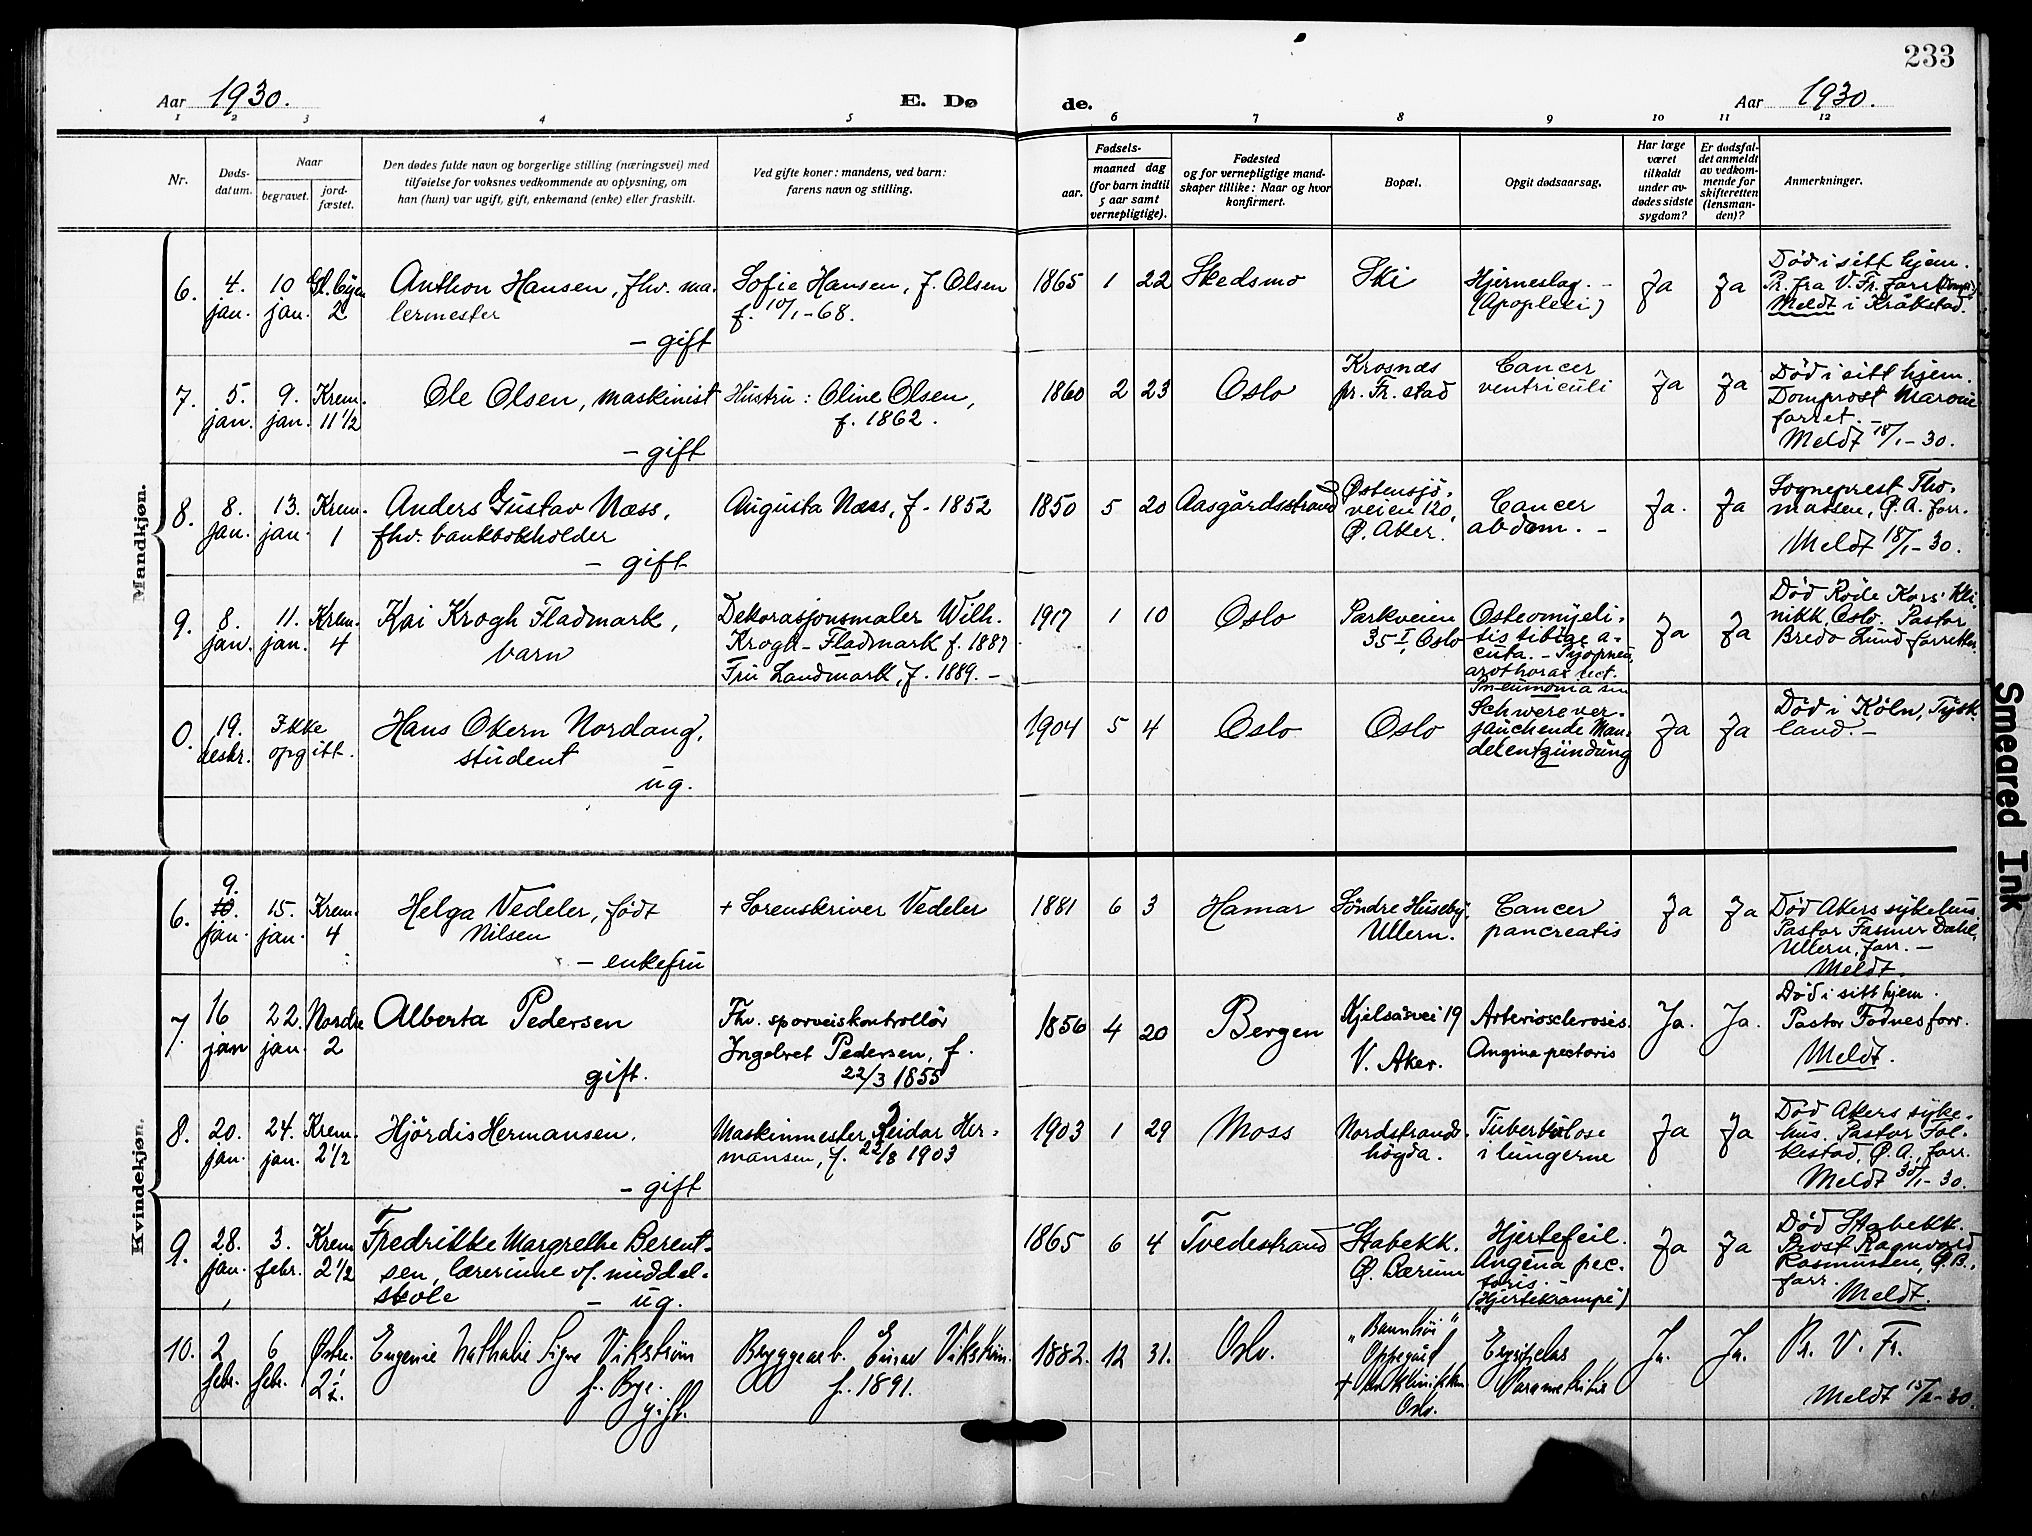 233
Aar 1930.
E. Døde.
Aar 1930.
1 2 3 4 5 6 7 8 9 10 11 12
Nr.
Døds-
datum.
Naar
begravet.
jord-
fæstet.
Den dødes fulde navn og borgerlige stilling (næringsvei) med
tilføielse for voksnes vedkommende av oplysning, om
han (hun) var ugift, gift, enkemand (enke) eller fraskilt.
Ved gifte koner: mandens, ved barn:
farens navn og stilling.
Fødsels-
aar.
maaned dag
(for barn indtil
5 aar samt
vernepligtige).
Fødested
og for vernepligtige mand-
skaper tillike: Naar og hvor
konfirmert.
Bopæl.
Opgit dødsaarsag.
Har læge
været
tilkaldt
under av-
dødes sidste
sygdom?
Er dødsfal-
det anmeldt
av vedkom-
mende for
skifteretten
(lensman-
den)?
Anmerkninger.
Mandkjøn.
6.
4.
jan.
10
jan.
2
Anthon Hansen, fhv. ma-
lermester
- gift
Sofie Hansen, f. Olsen
f. 10/1-68.
1865 1 22
Skedsmo
Ski
Hjerneslag. -
(Apoplexi)
Ja
Ja
Død i sitt hjem.
Pr. fra V. Fr. forr.
Meldt i Kråkstad.
7.
5.
jan.
9.
jan.
Krem.
11 1/2
Ole Olsen, maskinist
- gift
Hustru: Oline Olsen,
f. 1862.
1860 2 23
Oslo
Krosnæs
pr. Fr.stad
Cancer
ventriculi
Ja
Ja
Død i sitt hjem.
Domprost Maroni
forret. -
Meldt 18/1-30.
8.
8.
jan.
13.
jan.
Krem.
1
Anders Gustav Næss,
fhv. bankbokholder
- gift
Augusta Næss, f. 1852
1850 5 20
Aasgårdsstrand
Østensjø-
veien 120,
Ø. Aker.
Cancer
abdom. -
Ja.
Ja
Sogneprest Tho-
massen, Ø. A. forr.
Meldt 18/1-30.
9.
8.
jan.
11.
jan.
Krem.
4
Kai Krogh Fladmark,
barn
Dekorasjonsmaler Wilh.
Krogh-Fladmark f. 1887
Fru Landmark, f. 1889. -
1917 1 10
Oslo
Parkveien
35 I, Oslo
Osteomyeli-
tis tibiae a-
cuta. -
Pneumonia sin
Ja
Ja
Død Røde Kors Kli-
nikk, Oslo. Pastor
Bredo Lund forrettet.
0.
19.
desbr.
Ikke
opgitt.
Hans Okern Nordang,
student
ug.
1904 5 4
Oslo
Oslo
Schwere ver-
jauchende Man-
delentzündung
Ja
Ja
Død i Köln, Tysk-
land. -
Kvindekjøn.
6.
9.
10.
jan.
15.
jan.
Krem.
4
Helga Vedeler, født
Nilsen
- enkefru
+ Sorenskriver Vedeler
1881 6 3
Hamar
Søndre Huseby,
Ullern.
Cancer
pancreatis
Ja
Ja
Død Akers sykehus.
Pastor Farner Dahl,
Ullern, forr. -
Meldt.
7.
16
jan
22.
jan.
Nordre
2
Alberta Pedersen
gift.
Fhv. sporveiskontrollør
Ingebret Pedersen, f.
22/3 1855
1856 4 20
Bergen
Kjelsåsvei 19
V. Aker.
Arteriosclerosis.
Angina pectoris
Ja.
Ja.
Død i sitt hjem.
Pastor Fodnes forr.
Meldt.
8.
20.
jan.
24.
jan.
Krem.
2 1/2
Hjördis Hermansen.
- gift
Maskinmester Reidar Her-
mansen, f. 22/8 1903
1903 1 29
Moss
Nordstrand-
högda.
Tuberkulose
i lungerne
Ja
Ja
Død Akers syke-
hus. Pastor Fol-
kestad, Ø. A., forr.
Meldt 30/1-30.
9.
28.
jan.
3.
febr.
Krem
2 1/2
Fredrikke Margrethe Berent-
sen, lærerinne v/. middel-
skole - ug.
1865 6 4
Tvedestrand
Stabekk.
Ø. Bærum
Hjertefeil.
Angina pec-
toris.
(Hjertekrampe)
Ja
Ja
Død Stabekk.
Prost Ragnvald
Rasmussen, Ø. B.,
forr.
Meldt.
10.
2
febr.
6
febr.
Østre.
2 1/2.
Eugenie Nathalie Signe Vikstrøm
f. Bye.
gift.
Byggearb. Einar Vikstrøm.
f. 1891.
1882. 12 31.
Oslo.
Oppegård
Oslo.
Erysipelas
Ja.
Ja.
Pr. V. Fr.
Meldt 15/2-30
Smeared Ink